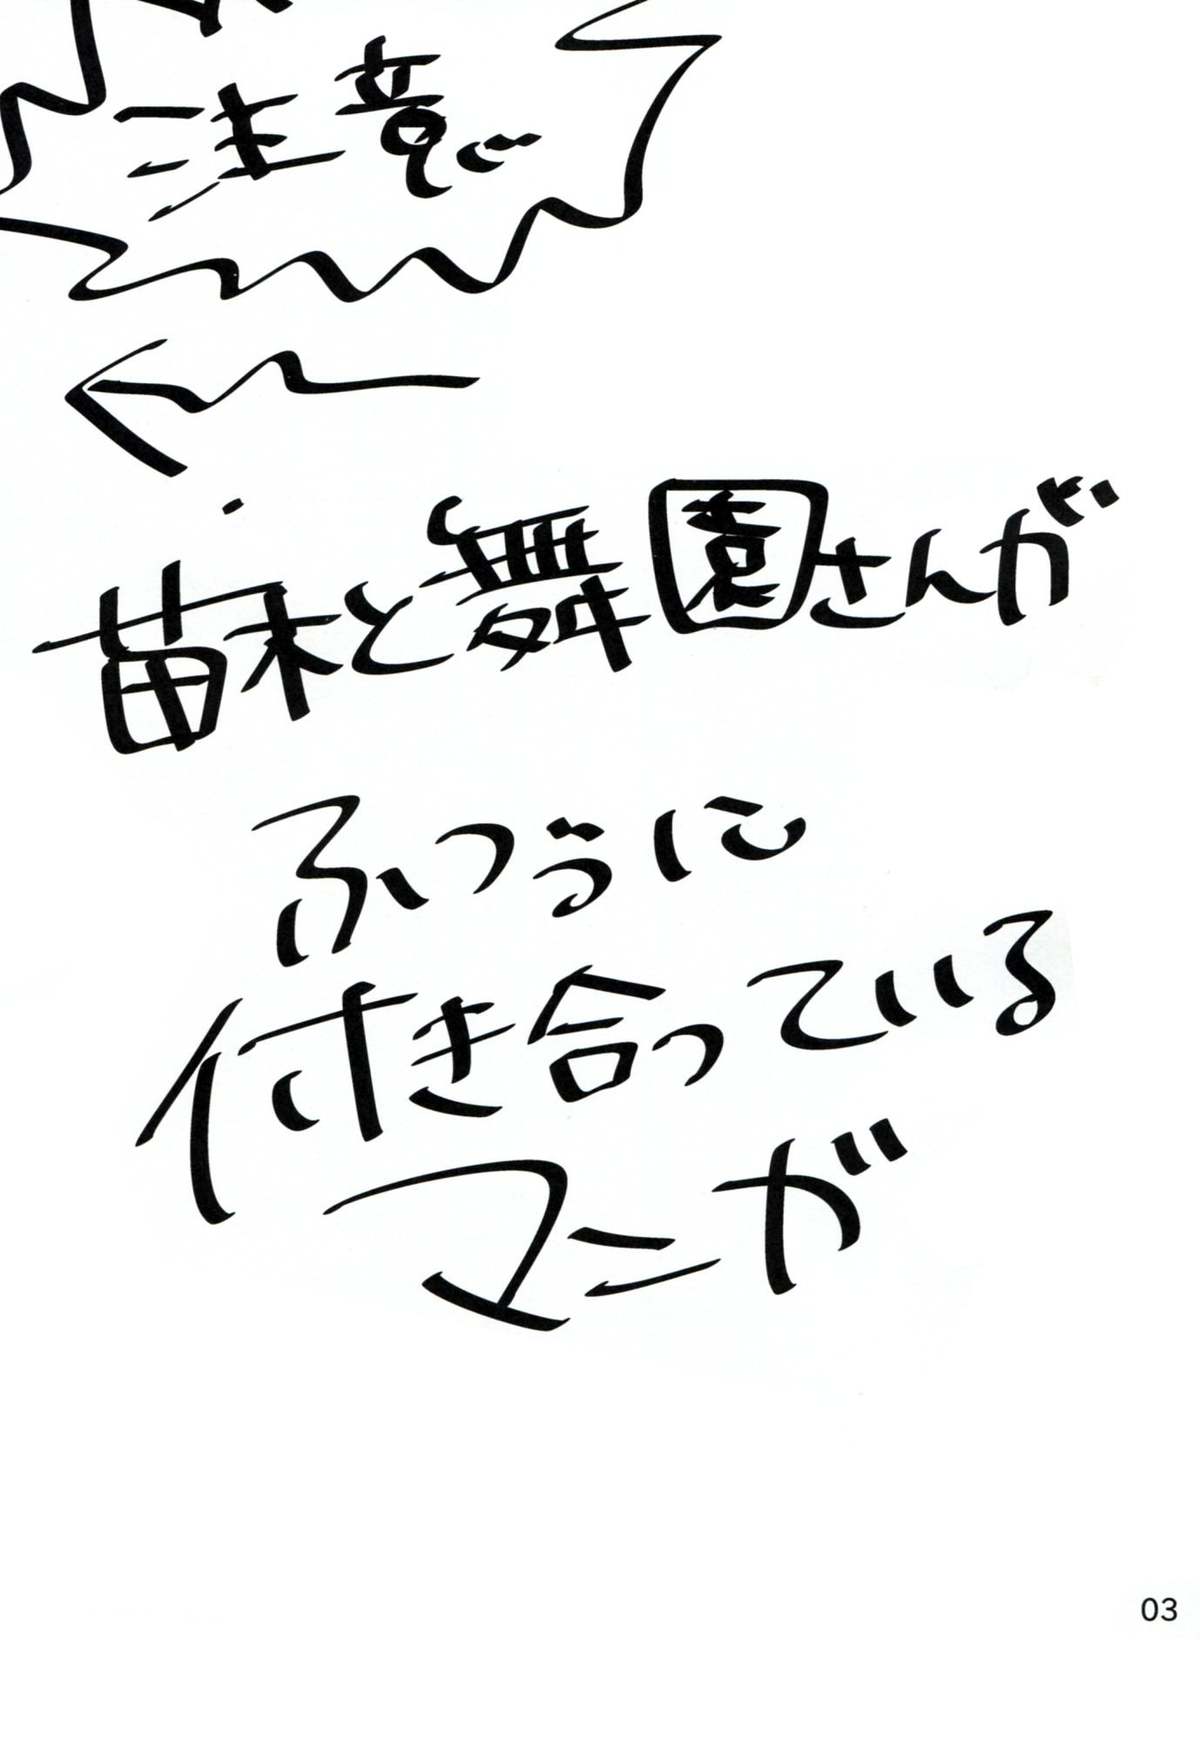 注意
苗木と舞園さんが
ふつうに
付き合っている
マンガ
03